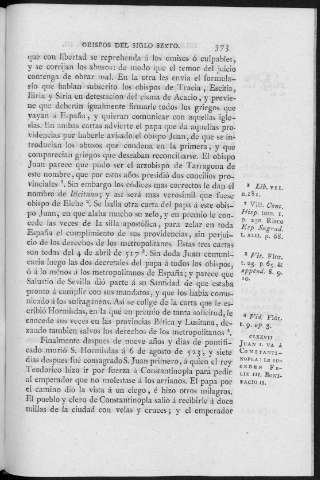 OBISPOS DEL SIGLO SEXTO. 373
que con libertad se reprehenda á los omisos ó culpables,
y se corrijan los abusos: de modo que el temor del juicio
contenga de obrar mal. En la otra les envia el formula-
rio que habian subscrito los obispos de Tracia, Escitia,
Iliria y Siria en detestacion del cisma de Acacio, y previe-
ne que deberán igualmente firmarle todos los griegos que
vayan á España, y quieran comunicar con aquellas igle-
sias. En ambas cartas advierte el papa que da aquellas pro-
videncias por haberle avisado el obispo Juan, de que se in-
troducian los abusos que condena en la primera, y que
comparecian griegos que deseaban reconciliarse. El obispo
Juan parece que pudo ser el arzobispo de Tarragona de
este nombre, que por estos años presidió dos concilios pro-
vinciales 1. Sin embargo los códices mas correctos le dan el
nombre de Ilicitano; y así será mas verosímil que fuese
obispo de Elche 2. Se halla otra carta del papa á este obis-
po Juan, en que alaba mucho su zelo, y en premio le con-
cede las veces de la silla apostólica, para zelar en toda
España el cumplimiento de sus providencias, sin perjui-
cio de los derechos de los metropolitanos. Estas tres cartas
son todas del 4 de abril de 517 3. Sin duda Juan comuni-
caria luego las dos decretales del papa á todos los obispos,
ó á lo ménos á los metropolitanos de España; y parece que
Salustio de Sevilla dió parte á su Santidad de que estaba
pronto á cumplir con sus mandatos, y que los habia comu-
nicado á los sufragáneos. Así se colige de la carta que le es-
cribió Hormisdas, en la que en premio de tanta solicitud, le
encede sus veces en las provincias Bética y Lusitana, de-
xando tambien salvos los derechos de los metropolitanos 4.
Finalmente despues de nueve años y dias de pontifi-
cado murió S. Hormisdas á 6 de agosto de 523; y siete
dias despues fué consagrado S. Juan primero, á quien el rey
Teodorico hizo ir por fuerza á Constantinopla para pedir
al emperador que no molestase á los arrianos. El papa por
el camino dió la vista á un ciego, é hizo otros milagros.
El pueblo y clero de Constantinopla salió á recibirle á doce
millas de la ciudad con velas y cruces; y el emperador
1 Lib. VII.
n. 281.
2 Vill. Conc.
Hisp. tom. 1.
p. 230. Risco
Esp. Sagrad.
t. XLII. p. 68.
3 Flr. Flor.
t. 29. p. 65; &
append. 8. 9.
10.
4 Vid. Flor.
t. 9. ap. 3.
CLXXVII
JUAN I. VA Á
CONSTANTI-
NOPLA: LE SU-
CEDEN FE-
LIX III. BONI-
FACIO II.